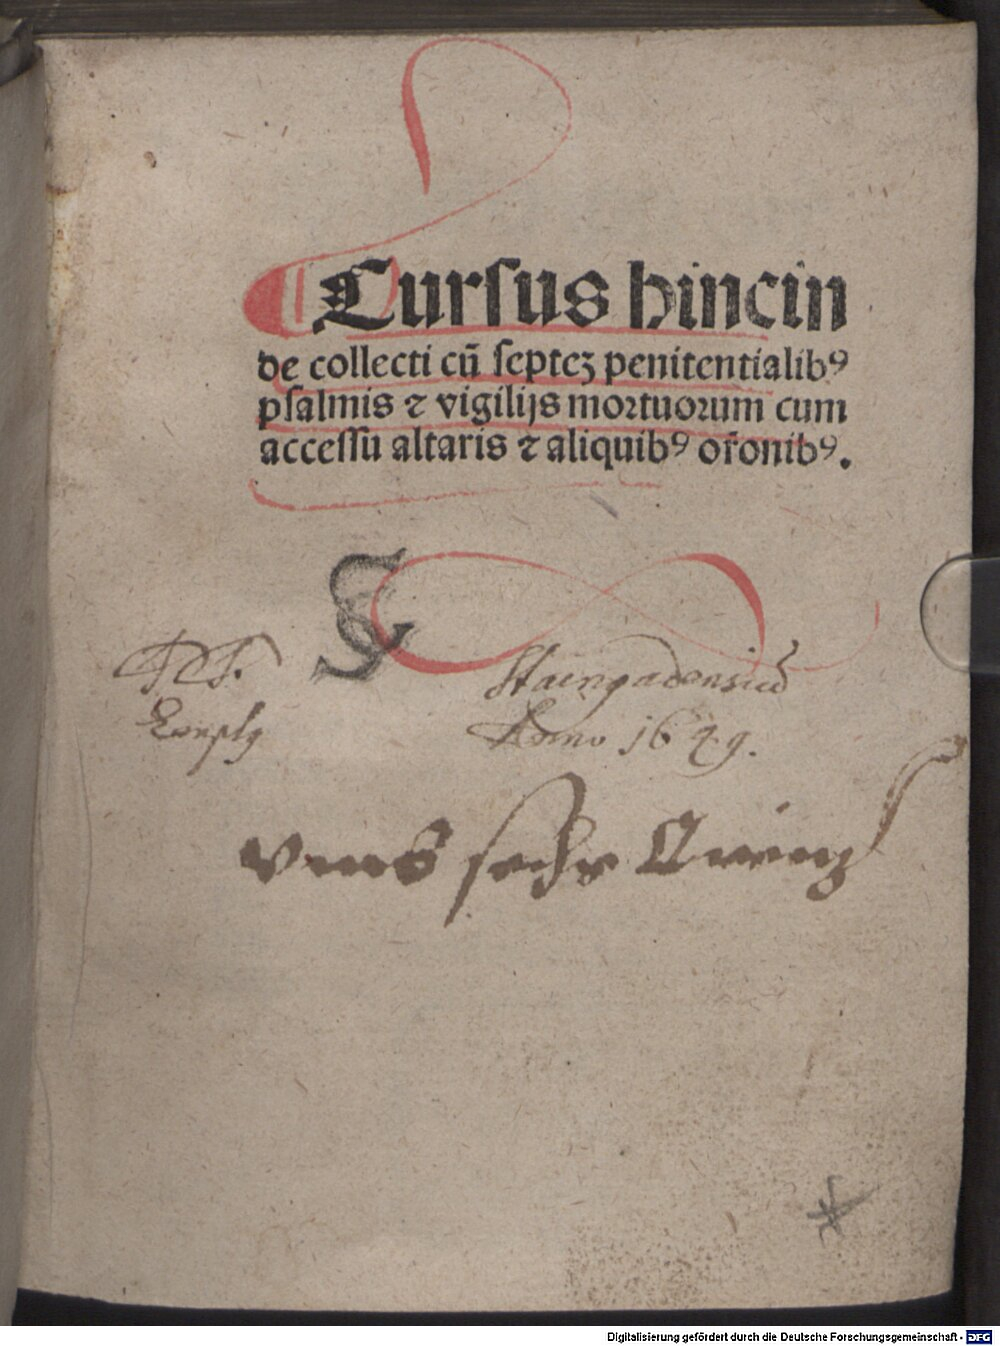 Cursus hincin
de collecti cū septeꝫ penitentialibꝰ
psalmis ⁊ vigilijs mortuorum cum
accessu altaris ⁊ aliquibꝰ or̄onibꝰ.
Staingadensis
Anno 1649.
Digitalisierung gefördert durch die Deutsche Forschungsgemeinschaft - DFG